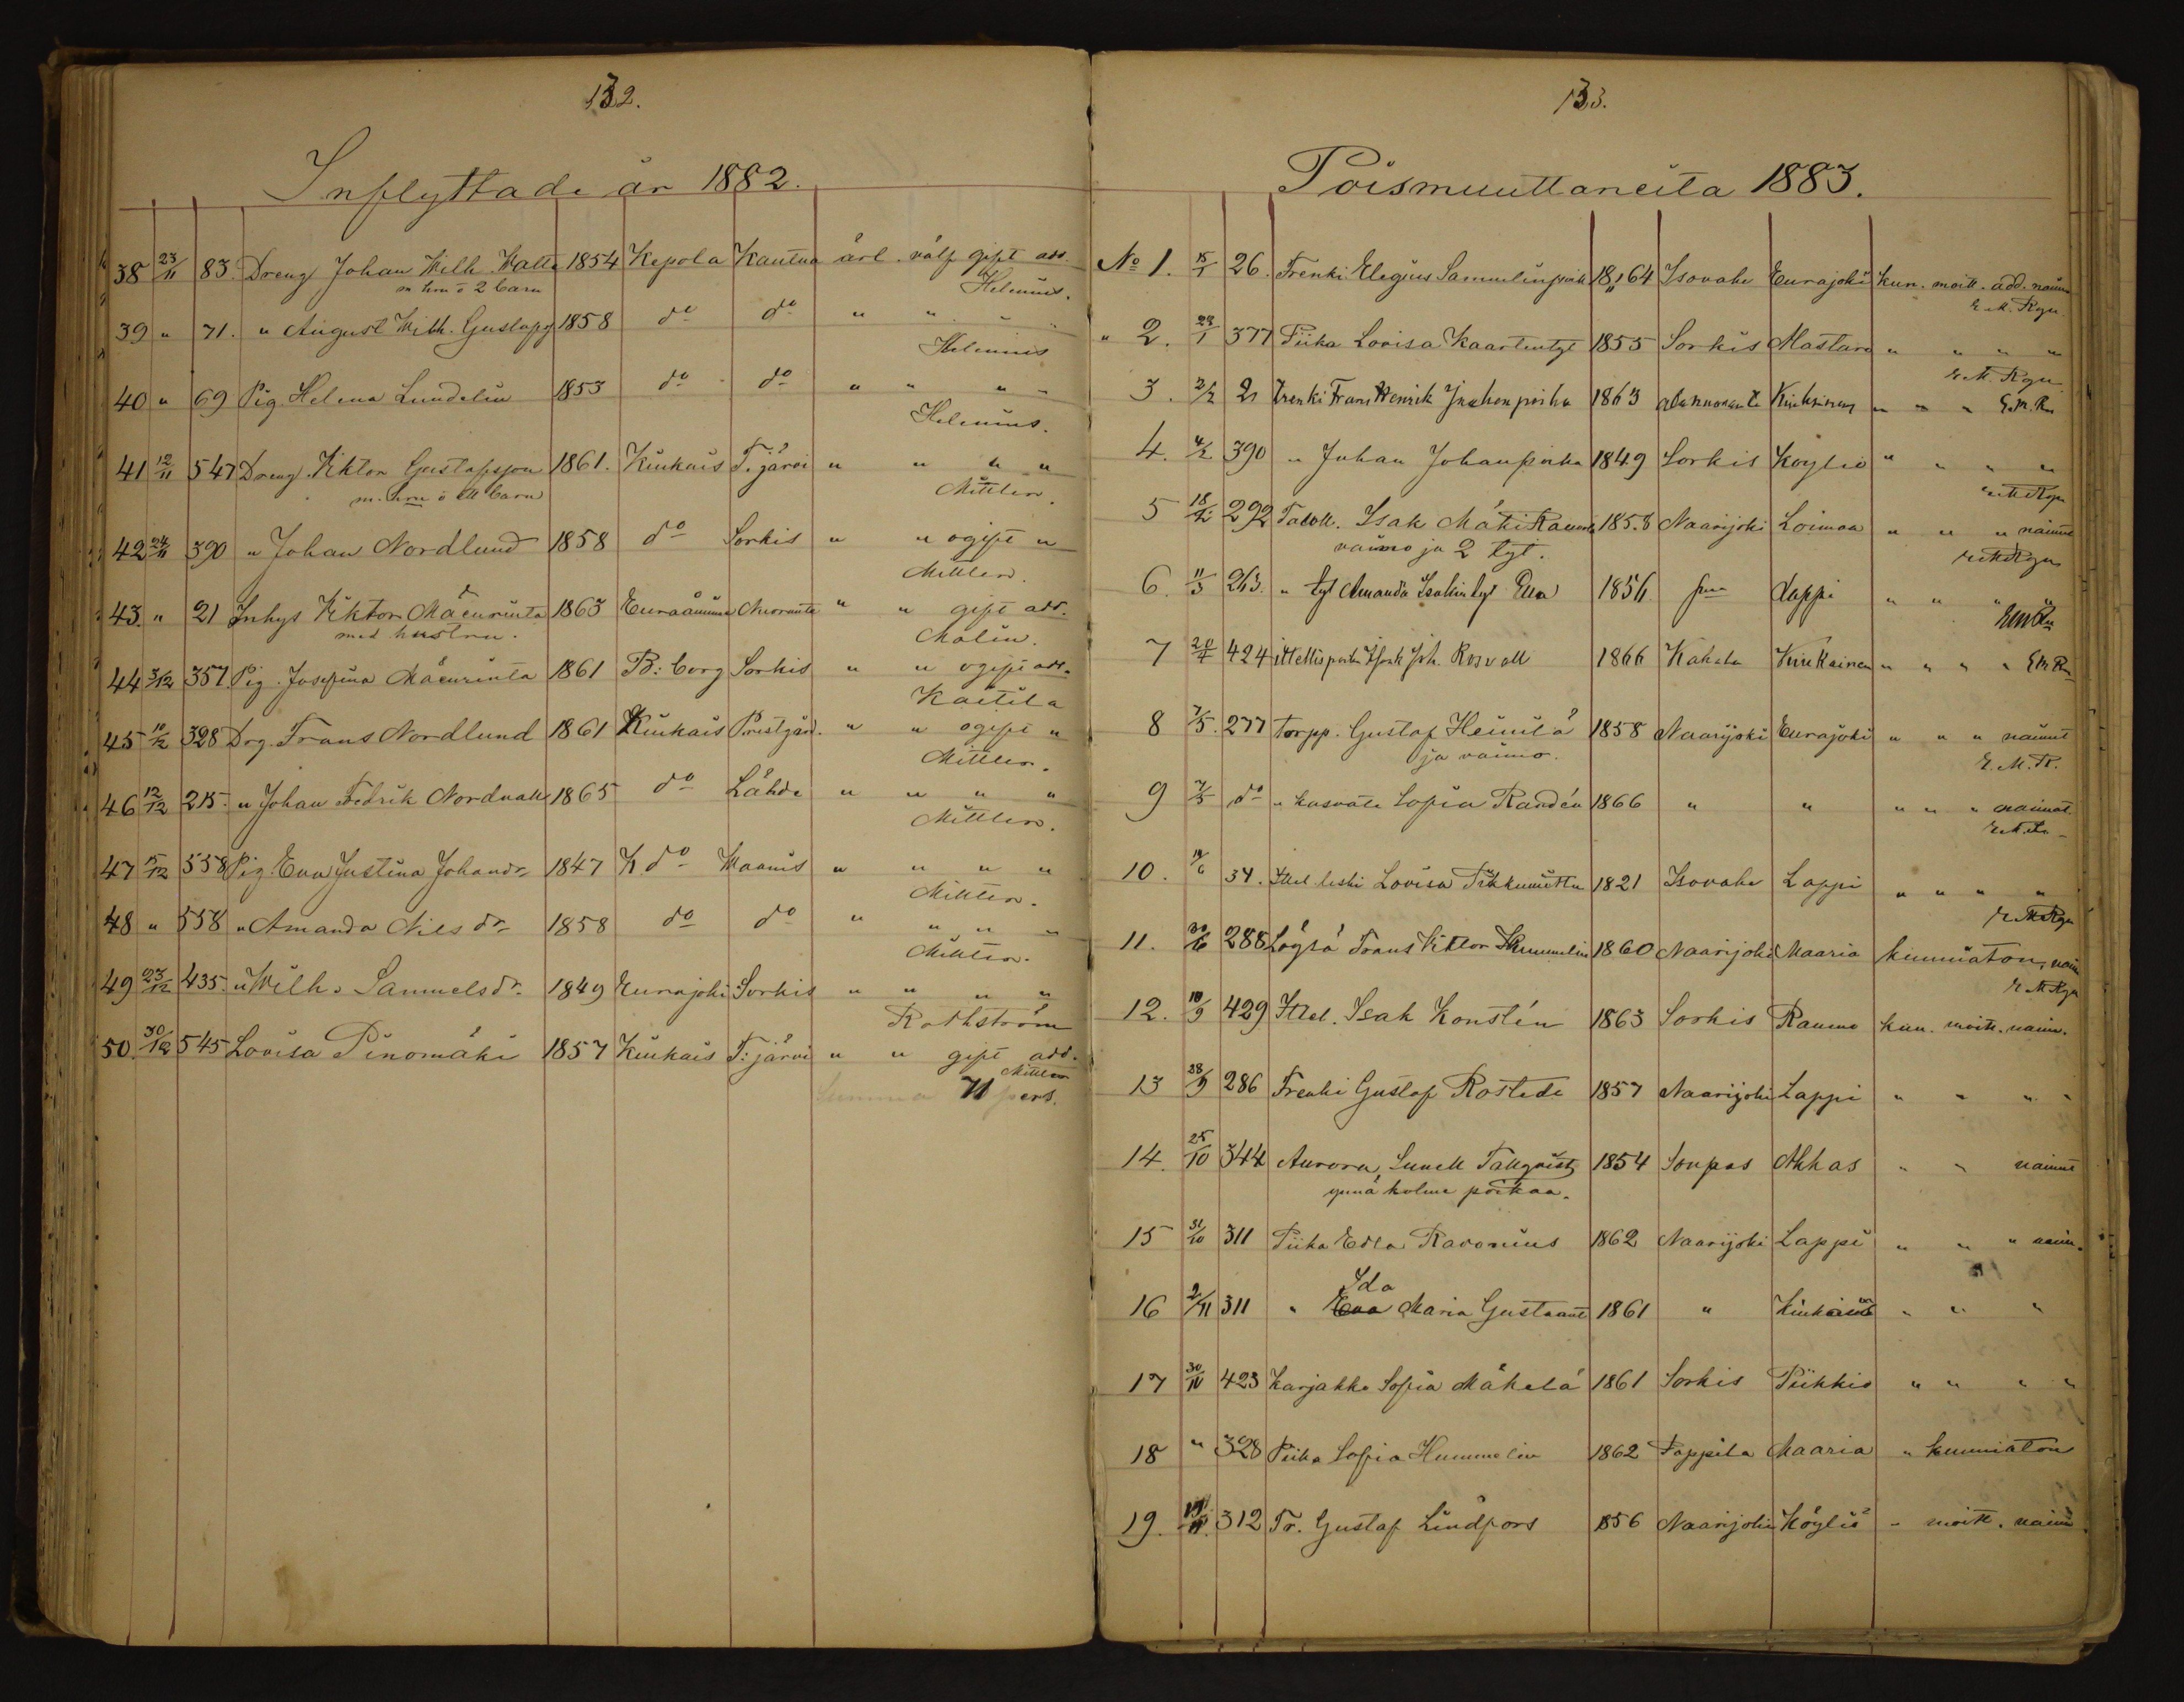 132.
Inflyttade år 1882.
38 23/11 83. Dreng Johan Wilh. Walle 1854 Kepola Kauttua ärl. välf. gift adv.
m hru o 2 barn Helenius.
39 " 71. " August Wilh. Gustafss 1858 do do " " " "
Helenius
40 " 69 Pig. Helena Lundelin 1853 do do " " " "
Helenius.
41 12/11 547 Dreng. Viktor Gustafsson 1861. Kiukais T. järvi " " " "
m. hru o ett barn Mittler.
42 24/11 390 " Johan Nordlund 1858 do Sorkis " " ogift "
Mittler.
43. " 21 Inhys Viktor Mäenrinta 1863 Euraåminne " " gift adv.
med hustru. Malin.
44 3/12 357. Pig. Josefina Mäenrinta 1861 B: borg Sorkis " " ogift adv.
Kaitila
45 10/12 328 Drg. Frans Nordlund 1861 Kiukais Prestgård. " " ogift "
Mittler.
46 12/12 215. " Johan Fedrik Nordvall 1865 do Lähde " " " "
Mittler.
47 15/12 558 Pig. Eva Justina Johansdr 1847 K do " " " "
Mittler.
48 " 558 " Amanda Nilsdr 1858 do do " " " "
Mittler.
49 23/12 435. " Wilh. Samuelsdr. 1849 Eurajoki Sorkis " " " "
Rothström
50. 30/12 545 Lovisa Pinomäki 1857 Kiukais T: järvi " " gift adv.
Mittler
Summa 71 pers.
133.
Poismuuttaneita 1883.
No 1. 15/1 26. Trenki Elegius Samulinpoik 18 64 Isovahe Eurajoki kun. moitt. add. naim
" 2. 23/1 377 Piika Lovisa Kaartentyt 1855 Sorkis Mastara " " " "
3. 2/2 21 Trenki Frans Henrik Juhonpoika 1863 Kiukainen " " "
4. 4/2 390 " Juhan Johanpoika 1849 Sorkis Köyliö " " " "
5 18/2 292 Taloll. Isak Mäki 1858 Naarijoki Loimaa " " " nainut
vaimo ja 2 tyt.
6. 11/3 263. " tyt Amanda Isakintyt 1856 Lappi " " " "
7 424 Ittellispoika Isak Joh. Rosvall 1866 Kahala Kiukainen " " " "
8 7/5. 277 torpp. Gustaf Heinilä 1858 Naarijoki Eurajoki " " " nainut
ja vaimo. E. M. R.
9 7/5 do " kasvate Sofia Randén 1866 " " " " " naimat.
10. 14/6 34. Ittel. leski Lovisa 1821 Isovahe Lappi " " " "
11. 288 Löysä Frans Viktor Hummelin 1860 Naarijoki Maaria kunniaton, naim
12. 10/9 429 Ittel. Isak Konstén 1863 Sorkis Rauma kun. moitt. naim.
13 28/9 286 Trenki Gustaf Rostedt 1857 Naarijoki Lappi " " " "
14. 25/10 344 Aurora Sunell Tallqvist 1854 Soupas Ahlas " " nainut
ynnä kolme poikaa.
15 31/10 311 Piika Edla Ravonius 1862 Naarijoki Lappi " " " naim.
Ida
16 2/11 311 " Eva Maria Gustaant 1861 " Kiukainen " " "
17 30/11 423 Karjakko Sofia Mäkelä 1861 Sorkis Piikkio " " " "
18 " 328 Piika Sofia Hummelin 1862 Pappila Maaria " kunniaton
19. 312 Tr. Gustaf Lindfors 1856 Naarijoki Köyliö " moitt. naim